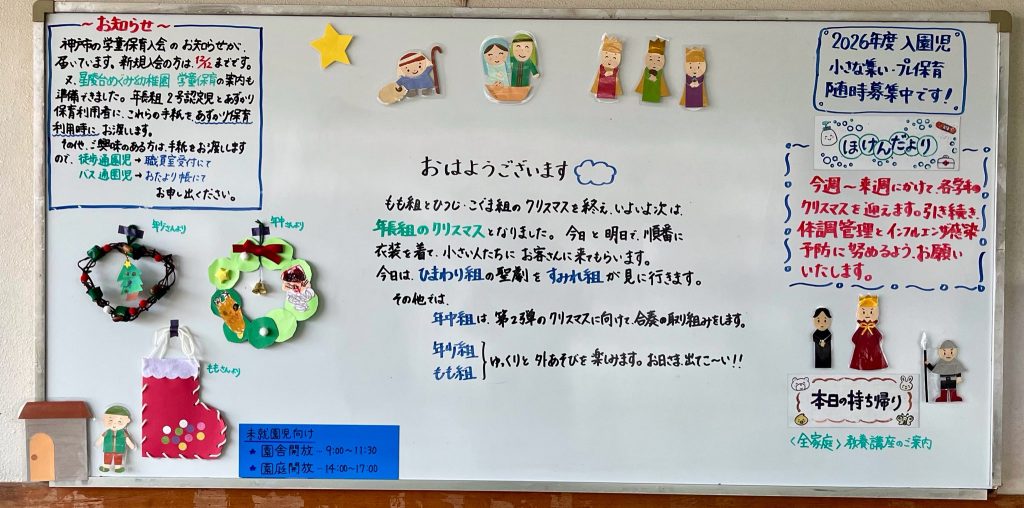 ～お知らせ～
神戸市の学童保育入会のお知らせが、
届いています。新規入会の方は、12/12までです。
又、星陵台めぐみ幼稚園 学童保育の案内も
準備できました。年長組 2号認定児とあずかり
保育利用者に、これらの手紙を、あずかり保育
利用時にお渡しします。
その他、ご興味のある方は、手紙をお渡しします
ので、徒歩通園児→職員室受付にて
バス通園児→おたより帳にて
お申し出ください。
年少さんより
年中さんより
ももさんより
未就園児向け
★園舎開放…9:00～11:30
★園庭開放…14:00～17:00
おはようございます
もも組とひつじ・こぐま組のクリスマスを終え、いよいよ次は、
年長組のクリスマスとなりました。今日と明日で、順番に
衣装を着て、小さい人たちにお客さんに来てもらいます。
今日は、ひまわり組の聖劇をすみれ組が見に行きます。
その他では、
年中組は、第2弾のクリスマスに向けて、合奏の取り組みをします。
年少組
もも組
ゆっくりと外あそびを楽しみます。お日さま、出てこ～い!!
2026年度 入園児
小さな集い・プレ保育
随時募集中です!
ほけんだより
今週～来週にかけて、各学年の
クリスマスを迎えます。引き続き、
体調管理とインフルエンザ感染
予防に努めるよう、お願い
いたします。
本日の持ち帰り
〈全家庭〉教養講座のご案内